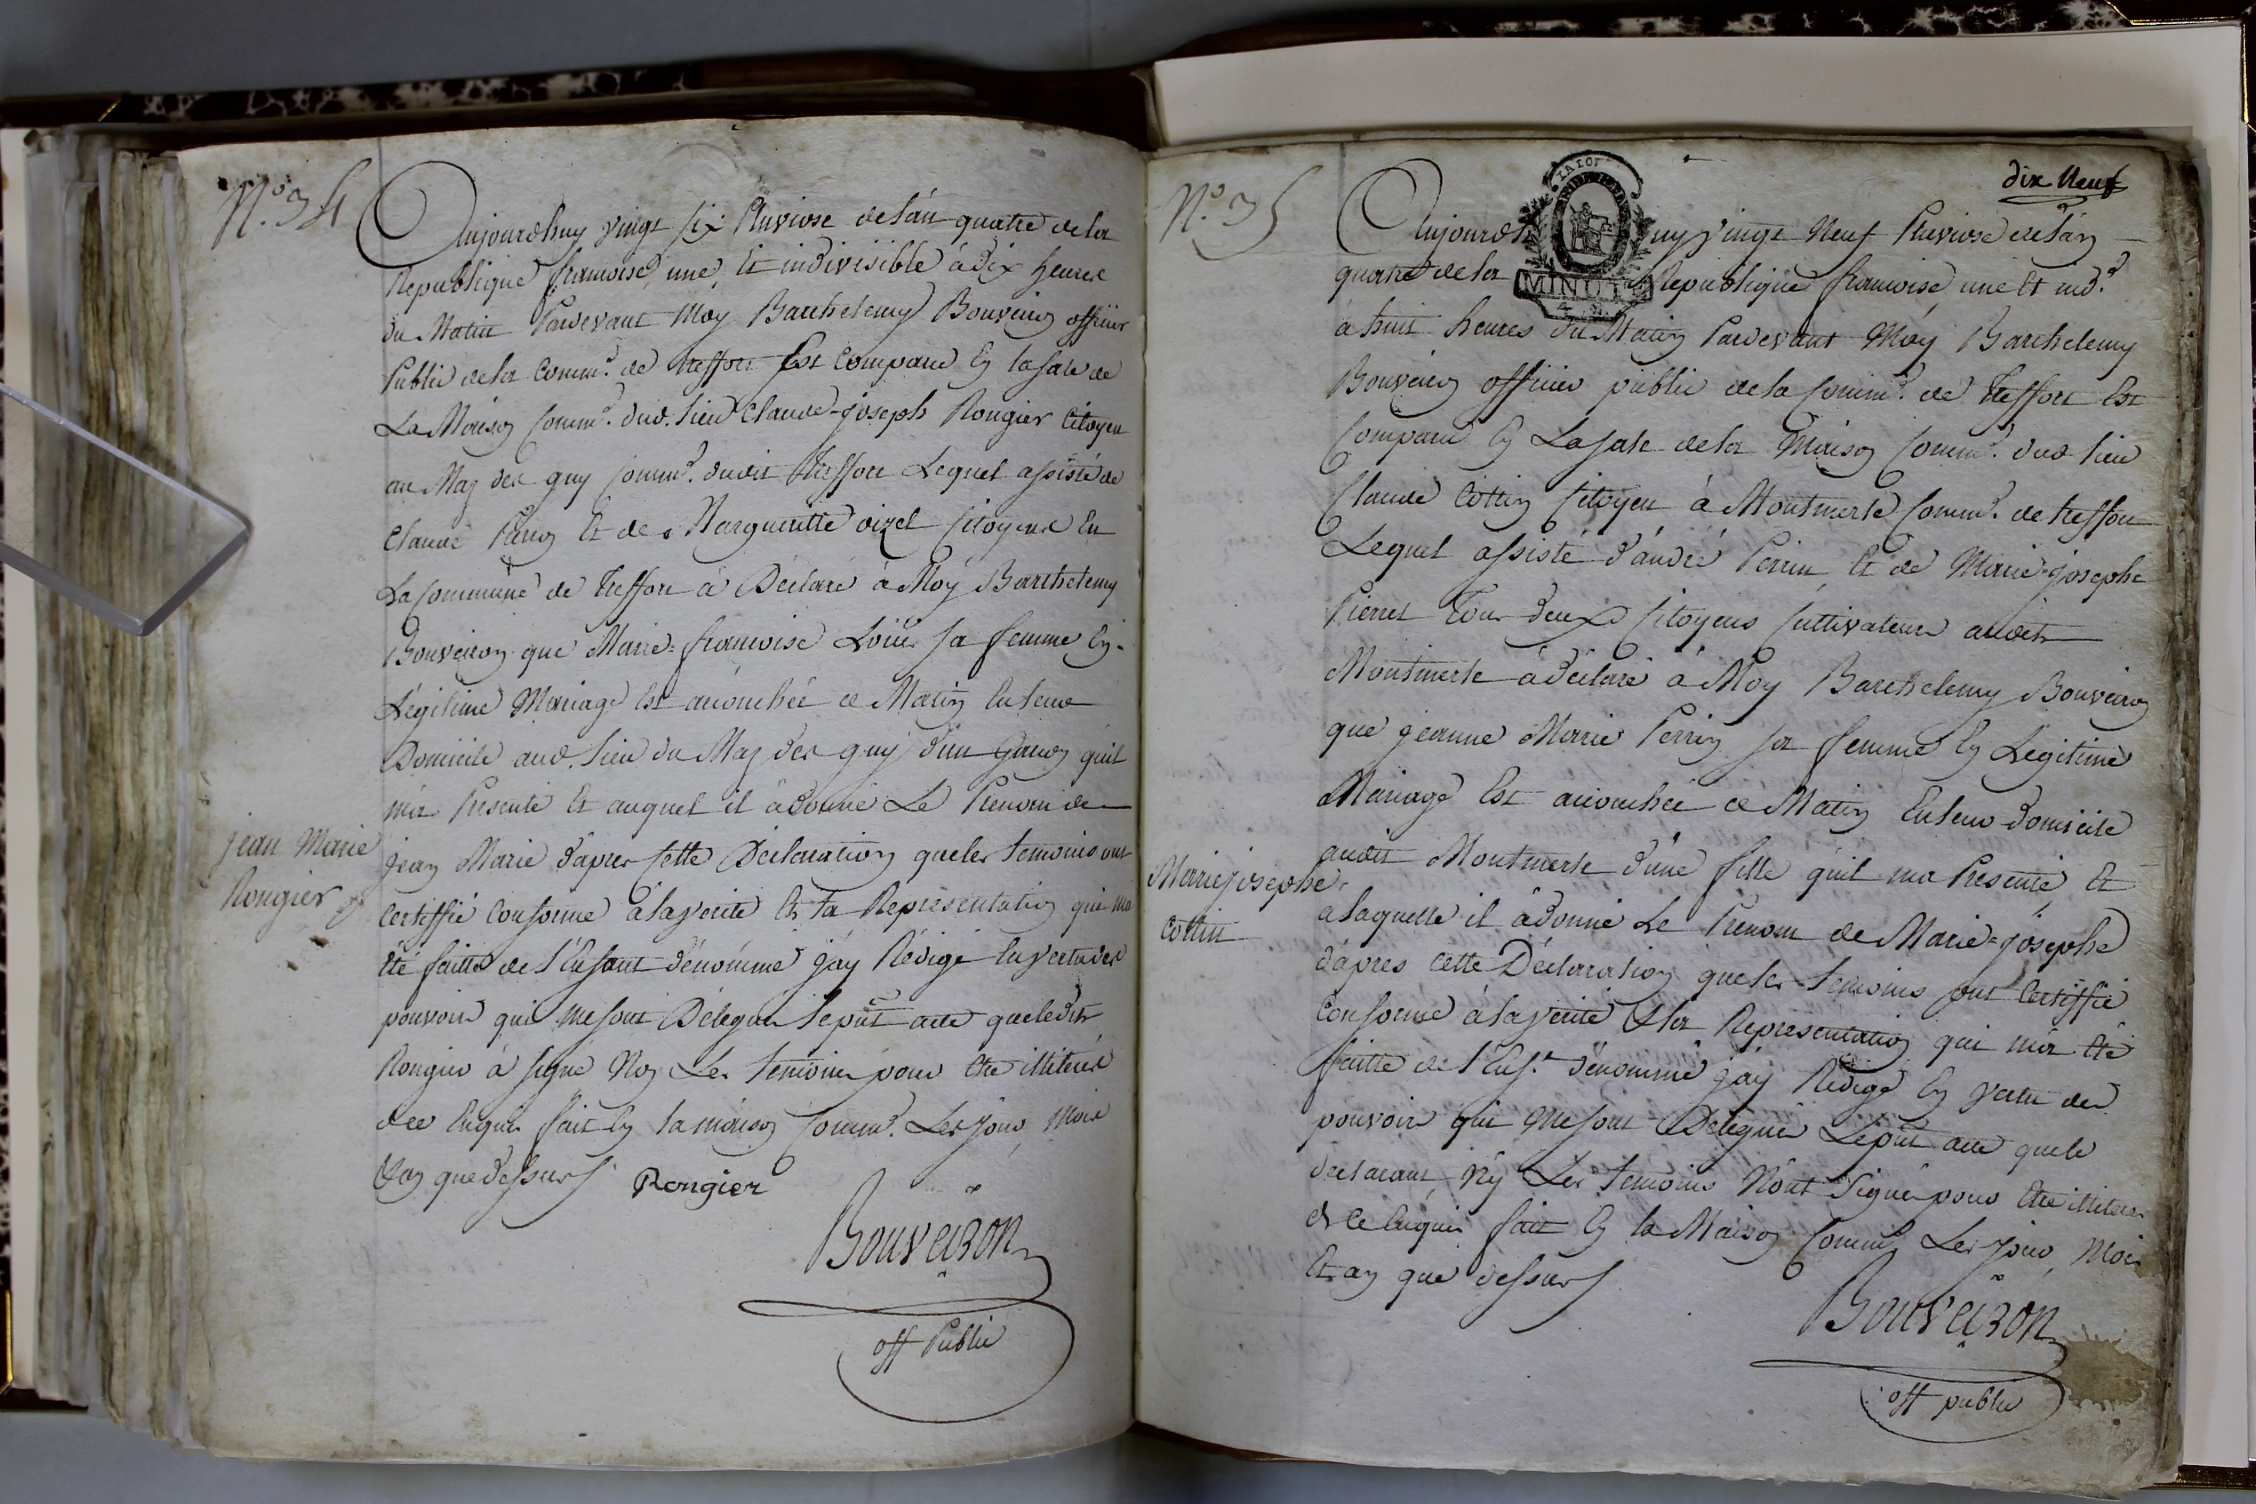 N.º 34
Aujourdhuy vingt six Pluviose de l'an quatre de la
Republique francoise, une, Et indivisible à dix heures
du Matin Pardevant Moy Barthelemy Bouveiron officier
Public de la Comm.e de treffort Est Comparu En la sale de
La Maison Comm.e dud. lieu Claude-joseph Rongier Citoyen
au Maz des guy Comm.e dudit treffort Lequel assisté de
Claude Et de Margueritte vizet Citoyens En
La Commune de treffort à Déclaré à Moÿ Barthelemy
Bouveiron que Marie=francoise sa femme En
Légitime Mariage Est accouchée ce Matin En leur
Domicile aud. lieu du Maz des guy d'un garcon quil
m'a Presenté Et auquel il à donné Le Prenom de
jean Marie d'apres Cette Déclaration que les temoins ont
Certiffié Conforme à la verité Et la Représentation qui m'a
Été faitte de l'Enfant dénommé j'ay Rédigé En vertu des
pouvoirs qui me sont Délégués le pnt acte que ledit
Rongier à signé Non Les temoins pour Etre illiterés
de ce Enquis fait En la maison Comm.e Les jour, Mois
& an que dessus
jean Marie
Rongier
Rongier
Bouveiron
off Public
dix Neuf
N.º 35
MINUTE
Aujourdhuy vingt Neuf Pluviose de l'an
quatre de la Republique francoise, une Et ind.e
à huit heures du Matin Pardevant Moÿ Barthelemy
Bouveiron officier public de la Comm.e de treffort Est
Comparu En La sale de la Maison Comm.e dud lieu
Claude Cottin Citoyen à Montmerle Comm.e de treffort
Lequel assisté d'andré Perrin Et de Marie=josephe
Pierret Tous deux Citoyens Cultivateurs audit
Montmerle à déclaré à Moy Barthelemy Bouveiron
que jeanne Marie Perrin sa femme En Légitime
Mariage Est accouchée ce Matin En leur domicile
audit Montmerle d'une fille quil ma Presenté, Et
a laquelle il à donné Le Prenom de Marie=josephe
d'apres cette Déclaration que les temoins ont Certiffié
Conforme à la verité & la Représentation qui m'a Eté
faitte de l'Enf.t dénommé j'ay Rédigé En vertu des
pouvoirs qui me sont Délégués Le pnt acte que le
declarant, Ny Les temoins N'ont signé pour Etre illiterés
de ce Enquis fait En la Maison Comm.e Les jour, Mois
Et an que dessus
Marie josephe
Cottin
Bouveiron
off public